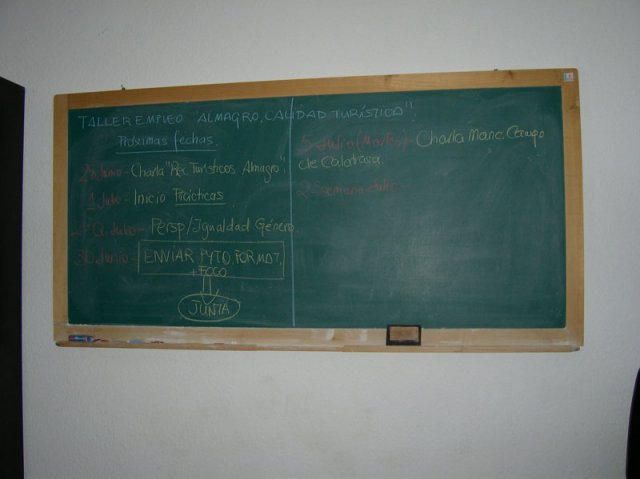 TALLER EMPLEO ALMAGRO, CALIDAD TURÍSTICA".
Próximas fechas.
Junio - Charla "Rec. Turísticos Almagro".
1 Julio - Inicio Prácticas.
Julio - Persp/Igualdad Género.
30 Junio - ENVIAR PYTO FORMAT.
+ FOCO
JUNTA
5 Julio (Martes) - Charla Manc. Campo
de Calatrava.
2ª Semana Julio -